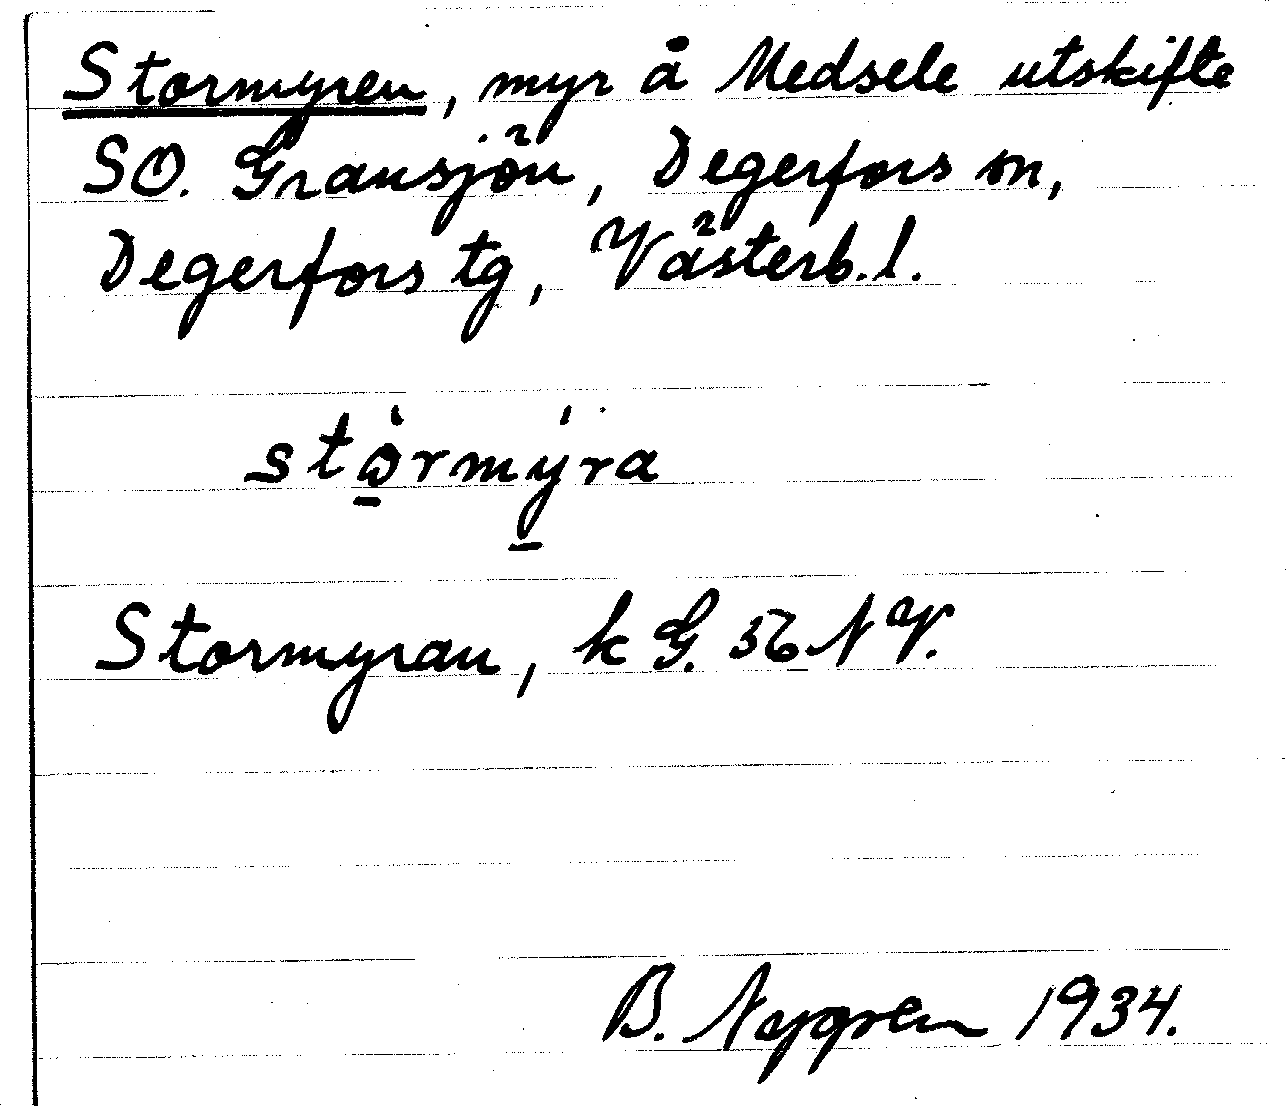 Stormyren, myr å Medsele utskifte
SO. Gransjön, Degerfors sn,
Degerfors tg, Västerb.l.
stòrmýra
Stormyran, k G. 56 NV.
B. Nygren 1934.